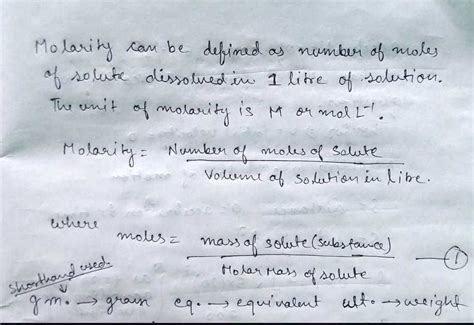 Molarity can be defined as number of moles
of solute dissolved in 1 litre of solution.
The unit of molarity is M or mol L⁻¹.
Molarity = Number of moles of Solute
Volume of Solution in litre.
where
moles = mass of solute (substance)
Molar Mass of solute
①
Shorthand used.
gm. → gram eq. → equivalent wt. → weight